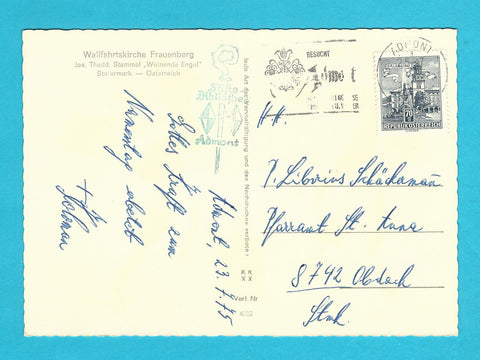 Wallfahrtskirche Frauenberg
Jos. Thadd. Stammel „Weinende Engel“
Steiermark — Österreich
Stifts
Bibliothek
Admont
Admont, 23.7.75
Gottes Kraft zum
Namenstag
jede Art der Vervielfältigung und des Nachdruckes verboten
K K
Verl. Nr.
BESUCHT
Admont
ADMONT
70
REPUBLIK ÖSTERREICH
H. H.
P. Librius Schackmann
Pfarramt St. Anna
8742 Obdach
Stmk